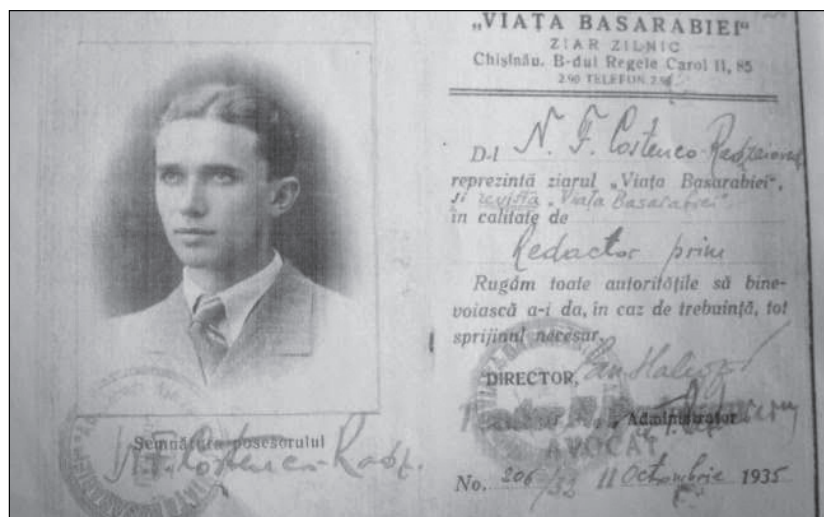 „VIAȚA BASARABIEI“
ZIAR ZILNIC
Chișinău. B-dul Regele Carol II, 85
2.96 TELEFON 2.96
D-l N. F. Costenco-Radzaiovschi
reprezintă ziarul „Viața Basarabiei“,
și revista „Viața Basarabiei“
în calitate de
Redactor prim
Rugăm toate autoritățile să bine-
voiască a-i da, în caz de trebuință, tot
sprijinul necesar.
DIRECTOR, Pan Halippa
Administrator
AVOCAT
No. 206/32 11 Octombrie 1935
Semnătura posesorului
N. F. Costenco-Radz.